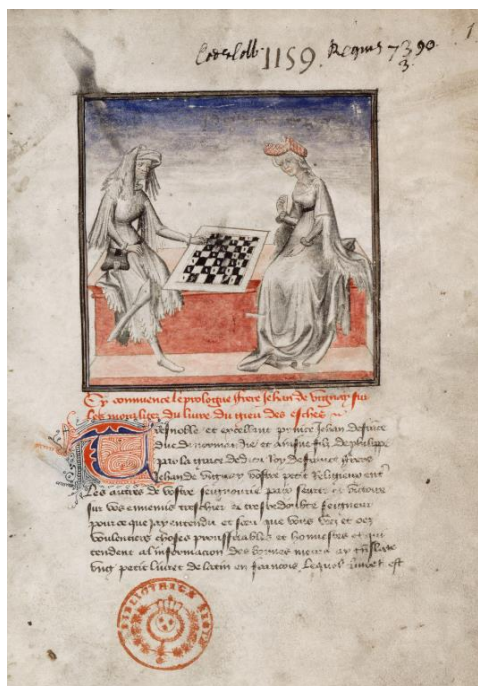 Cod. Colb. 1159 Regius 7390
3
1
Cy commence le prologue frere Jehan de vignay sur
Les moralitez du livre du gieu des esches
Tresnoble et excellant prince Jehan de france
duc de normandie et ainsne filz de philippe
par la grace de dieu Roy de france frere
Jehan de vignay vostre petit Religieux entre
Les autres de vostre seignourie paix sante et victoire
sur vos ennemis treschier et tresredoubte seigneur
pour ce que jay entendu et sceu que vous veez et oez
voulentiers choses prouffitables et honnestes et qui
tendent a linformacion des bonnes meurs ay translate
ung petit livret de latin en francois Lequel livret est
BIBLIOTHECA REGIA